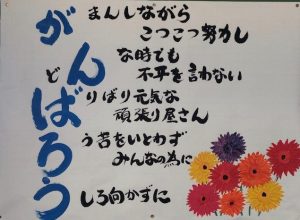 がまんしながら
こつこつ努力し
どんな時でも
不平を言わない
ばりばり元気な
頑張り屋さん
ろう苦をいとわず
みんなの為に
うしろ向かずに